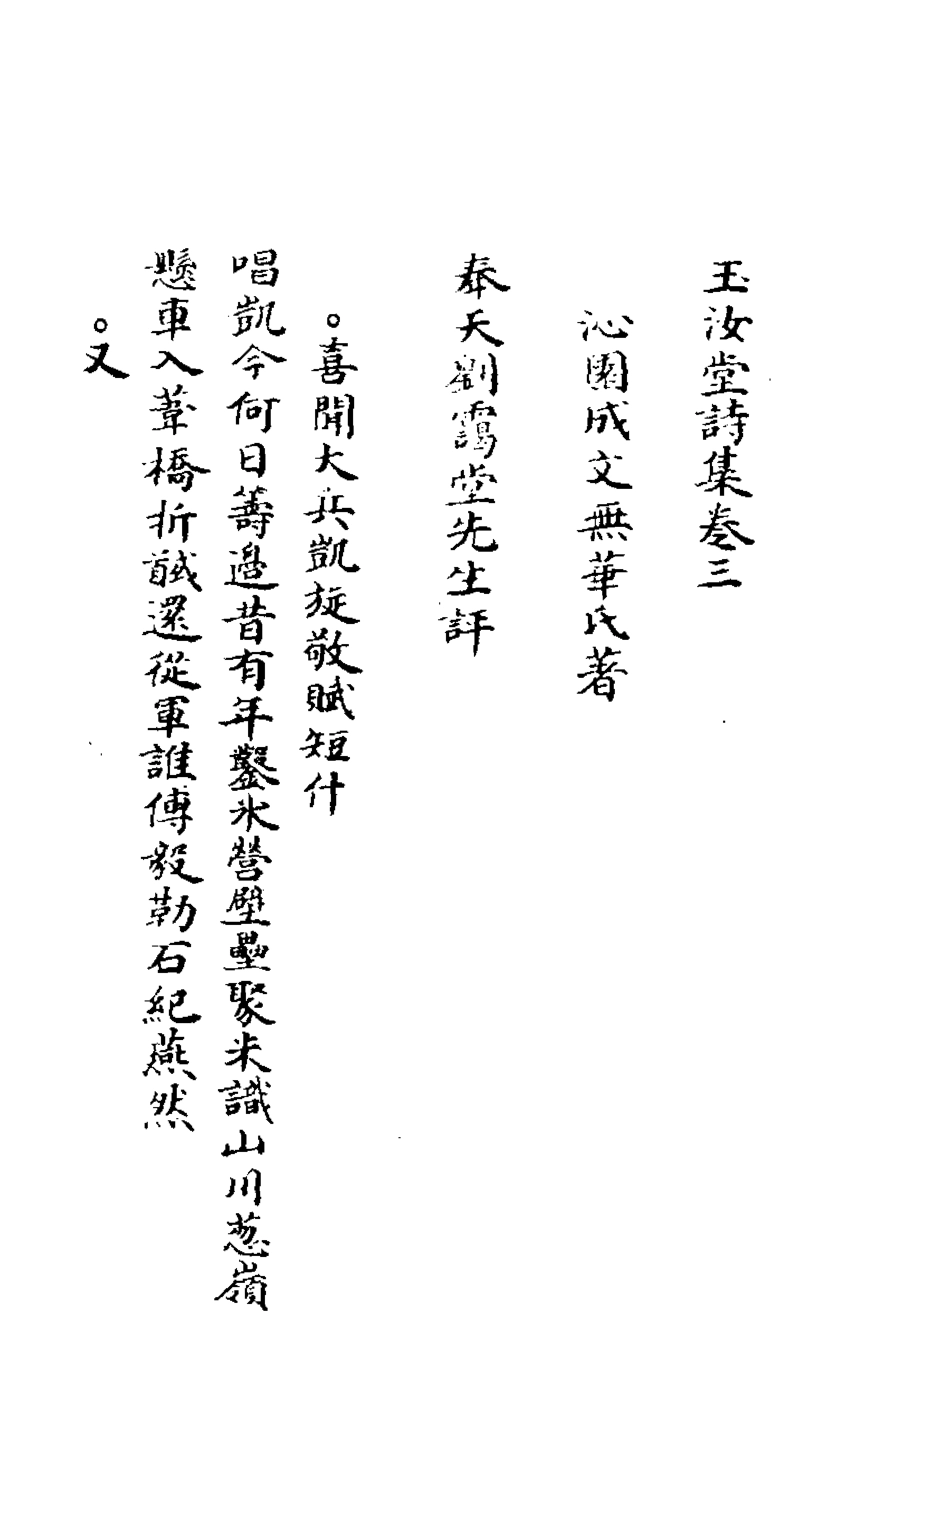 玉汝堂詩集卷三
沁園成文無華氏著
奉天劉靄堂先生評
。喜聞大兵凱旋敬賦短什
唱凱今何日籌邉昔有年鑿氷營壁壘聚米識山川葱嶺
懸車入葦橋折馘還從軍誰傅毅勒石紀燕然
。又